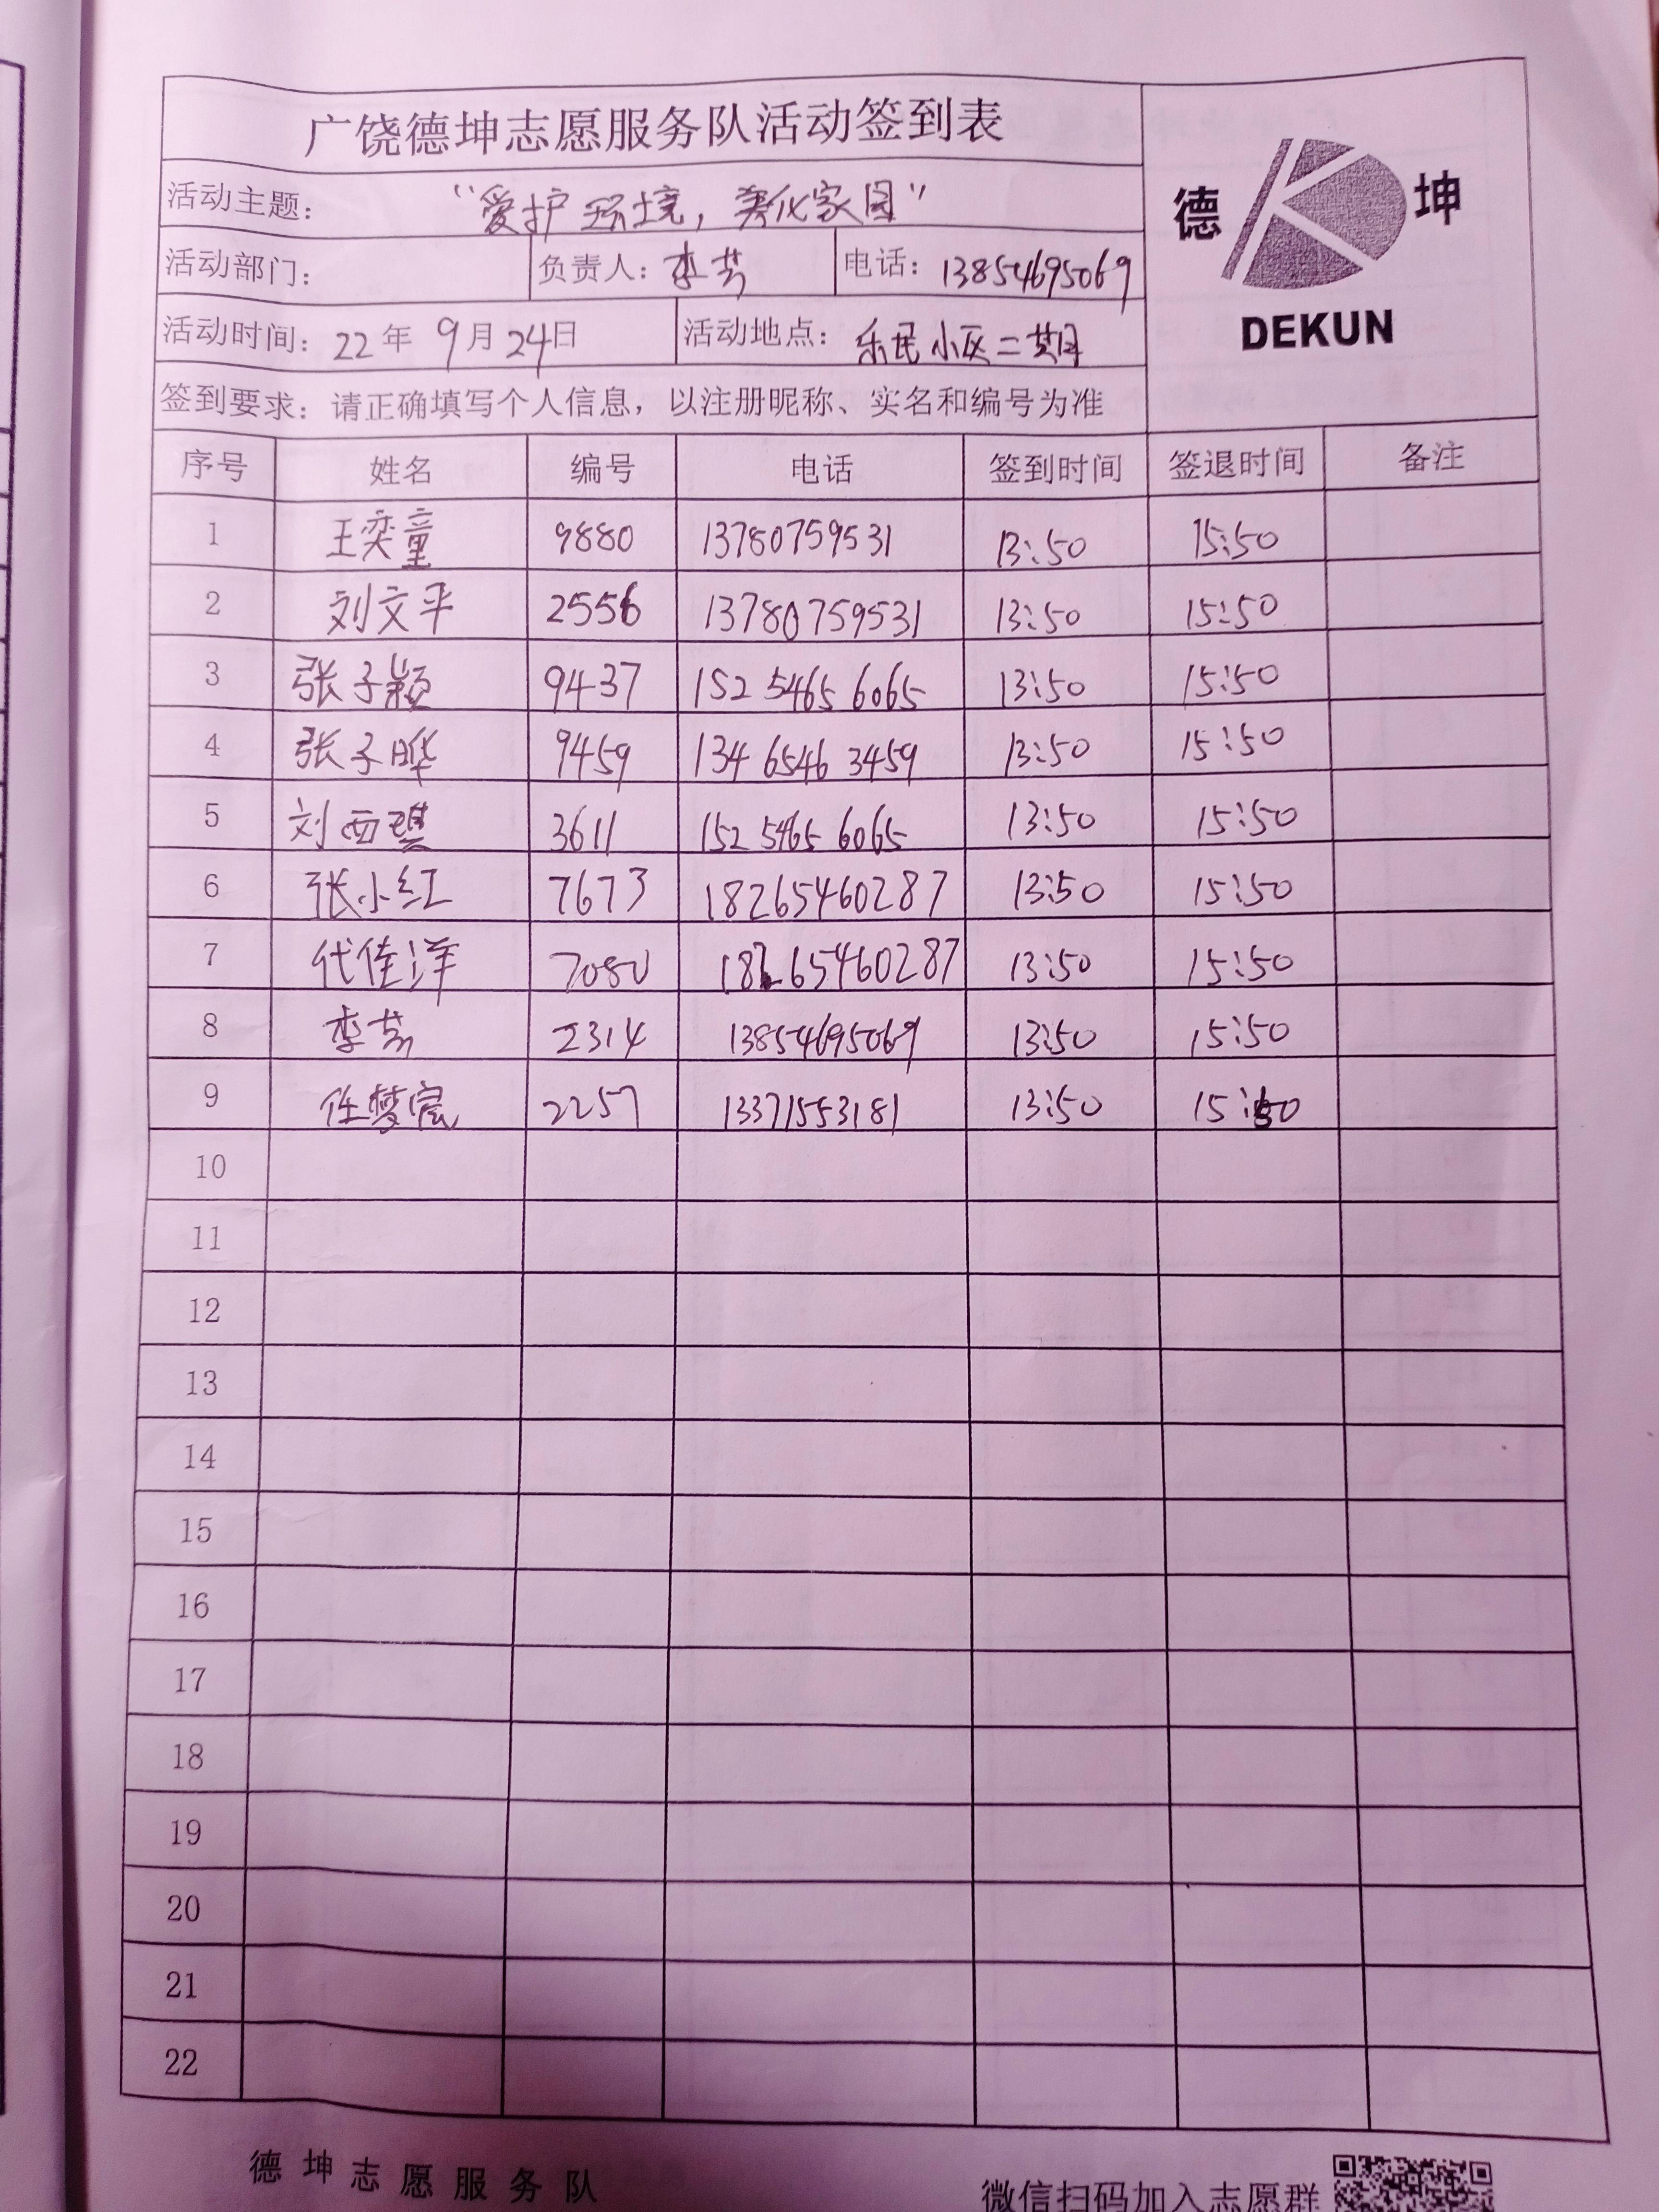 广饶德坤志愿服务队活动签到表
德 坤
DEKUN
活动主题： “爱护环境，美化家园”
活动部门： 负责人：李芳 电话：13854695069
活动时间：22年 9月24日 活动地点：乐民小区二期
签到要求：请正确填写个人信息，以注册昵称、实名和编号为准
序号 姓名 编号 电话 签到时间 签退时间 备注
1 王奕童 9880 13780759531 13:50 15:50
2 刘文平 2556 13780759531 13:50 15:50
3 张子颖 9437 152 5465 6065 13:50 15:50
4 张子晔 9459 134 6546 3459 13:50 15:50
5 刘西琪 3611 152 5465 6065 13:50 15:50
6 张小红 7673 18265460287 13:50 15:50
7 代佳洋 7080 18265460287 13:50 15:50
8 李芳 2314 13854695069 13:50 15:50
9 任梦宸 2257 13371553181 13:50 15:50
10
11
12
13
14
15
16
17
18
19
20
21
22
德坤志愿服务队
微信扫码加入志愿群